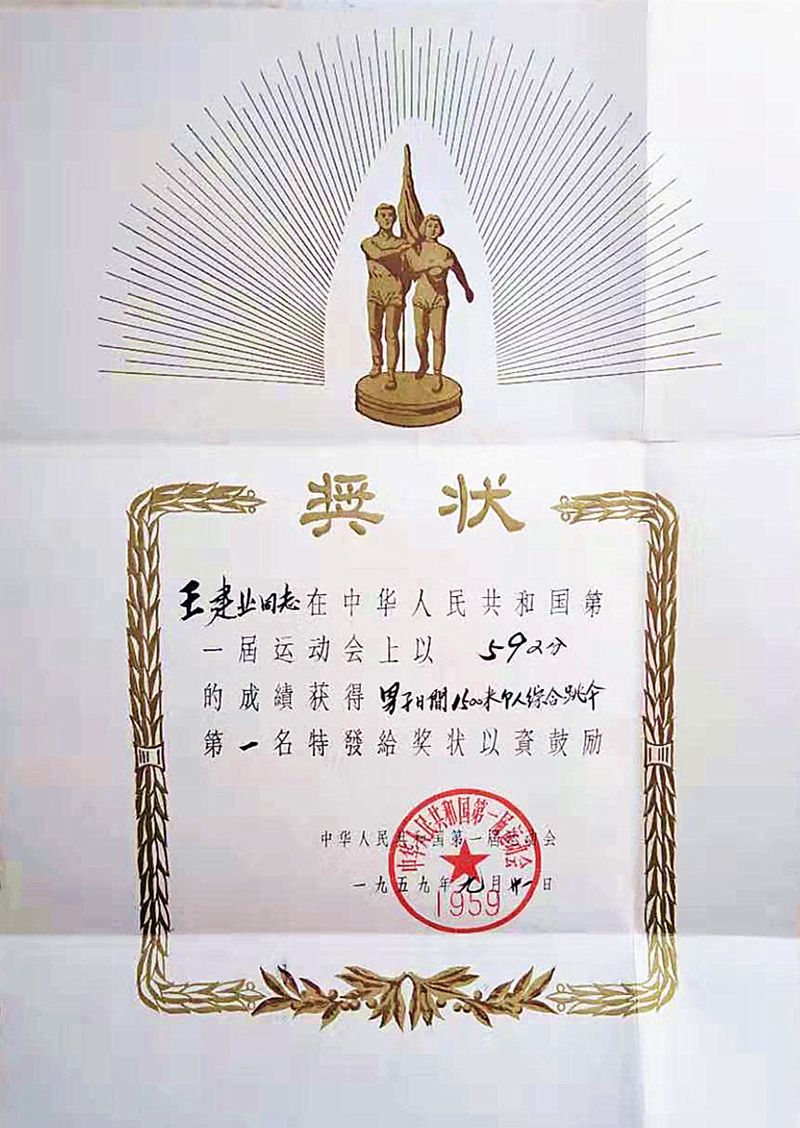 奖状
王建业同志在中华人民共和国第
一届运动会上以 592分
的成績获得男子日間1500米个人综合跳伞
第一名特發給奖状以資鼓励
中华人民共和国第一届运动会
一九五九年九月廿一日
中华人民共和国第一届运动会
1959